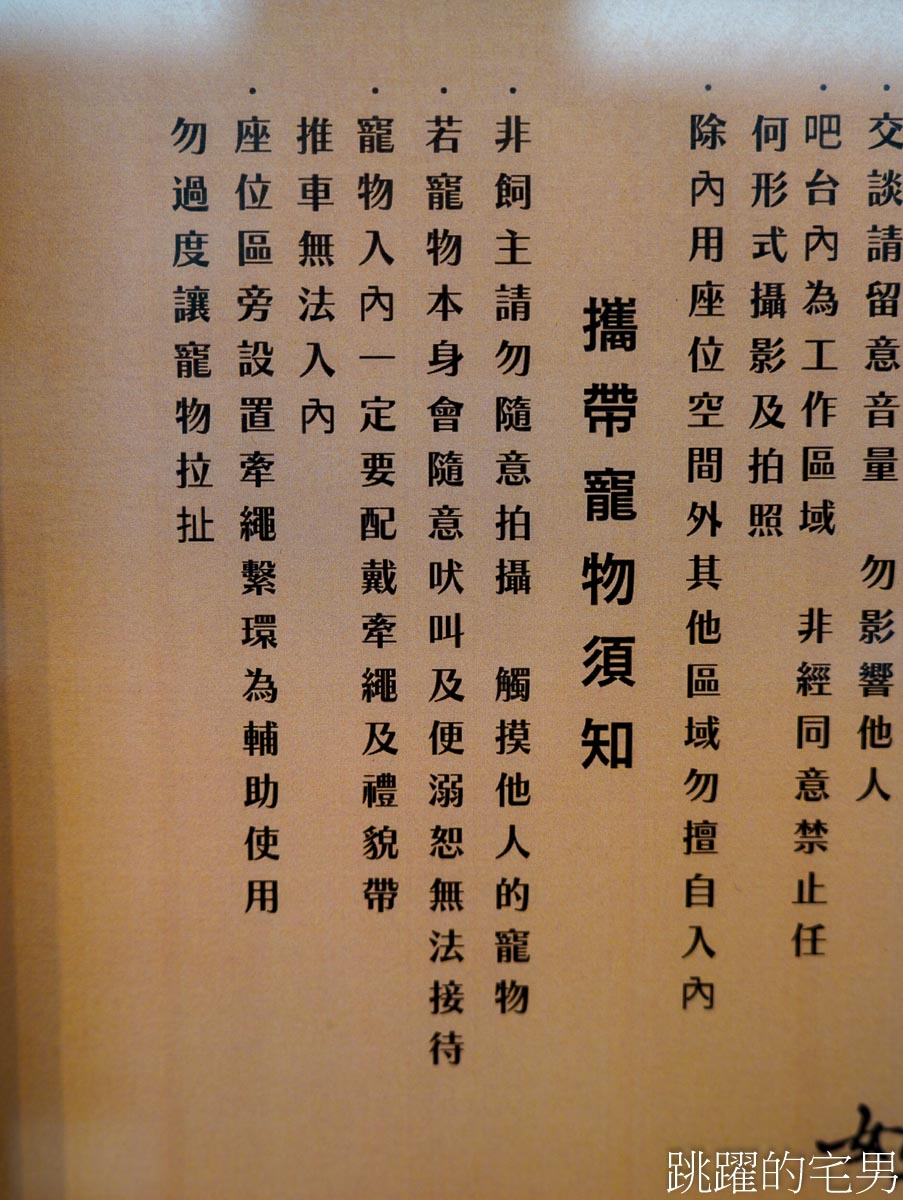 ・交談請留意音量　勿影響他人
・吧台內為工作區域　非經同意禁止任
何形式攝影及拍照
・除內用座位空間外其他區域勿擅自入內
攜帶寵物須知
・非飼主請勿隨意拍攝　觸摸他人的寵物
・若寵物本身會隨意吠叫及便溺恕無法接待
・寵物入內一定要配戴牽繩及禮貌帶
推車無法入內
・座位區旁設置牽繩繫環為輔助使用
勿過度讓寵物拉扯
跳躍的宅男